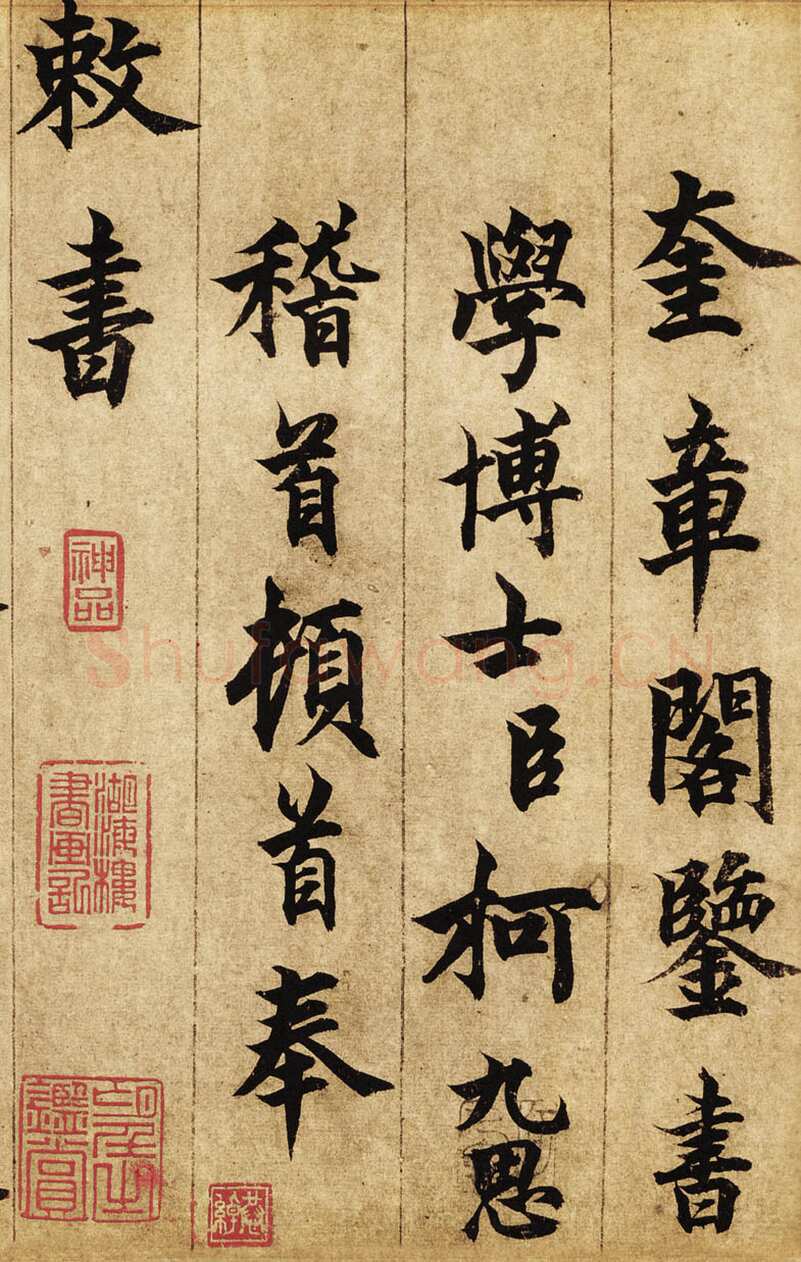 奎章閣鑒書
學博士臣柯九思
稽首頓首奉
敕書
神品
湖海樓
書畫記
Shufawang.CN